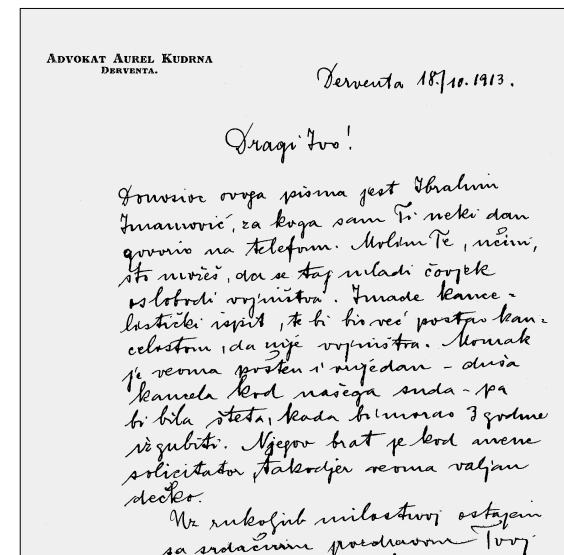 ADVOKAT AUREL KUDRNA
DERVENTA.
Derventa 18./10. 1913.
Dragi Ivo!
Donosioc ovoga pisma jest Ibrahim
Imamović, za koga sam Ti neki dan
govorio na telefon. Molim Te, učini,
što možeš, da se taj mladi čovjek
oslobodi vojništva. Imade kance-
listički ispit, te bi bio već postao kan-
celistom, da nije vojništva. Momak
je veoma pošten i vrijedan - duša
kancela kod našega suda - pa
bi bila šteta, kada bi morao 3 godine
izgubiti. Njegov brat je kod mene
solicitator, takodjer veoma valjan
dečko.
Uz rukoljub milostivoj ostajem
sa srdačnim pozdravom Tvoj